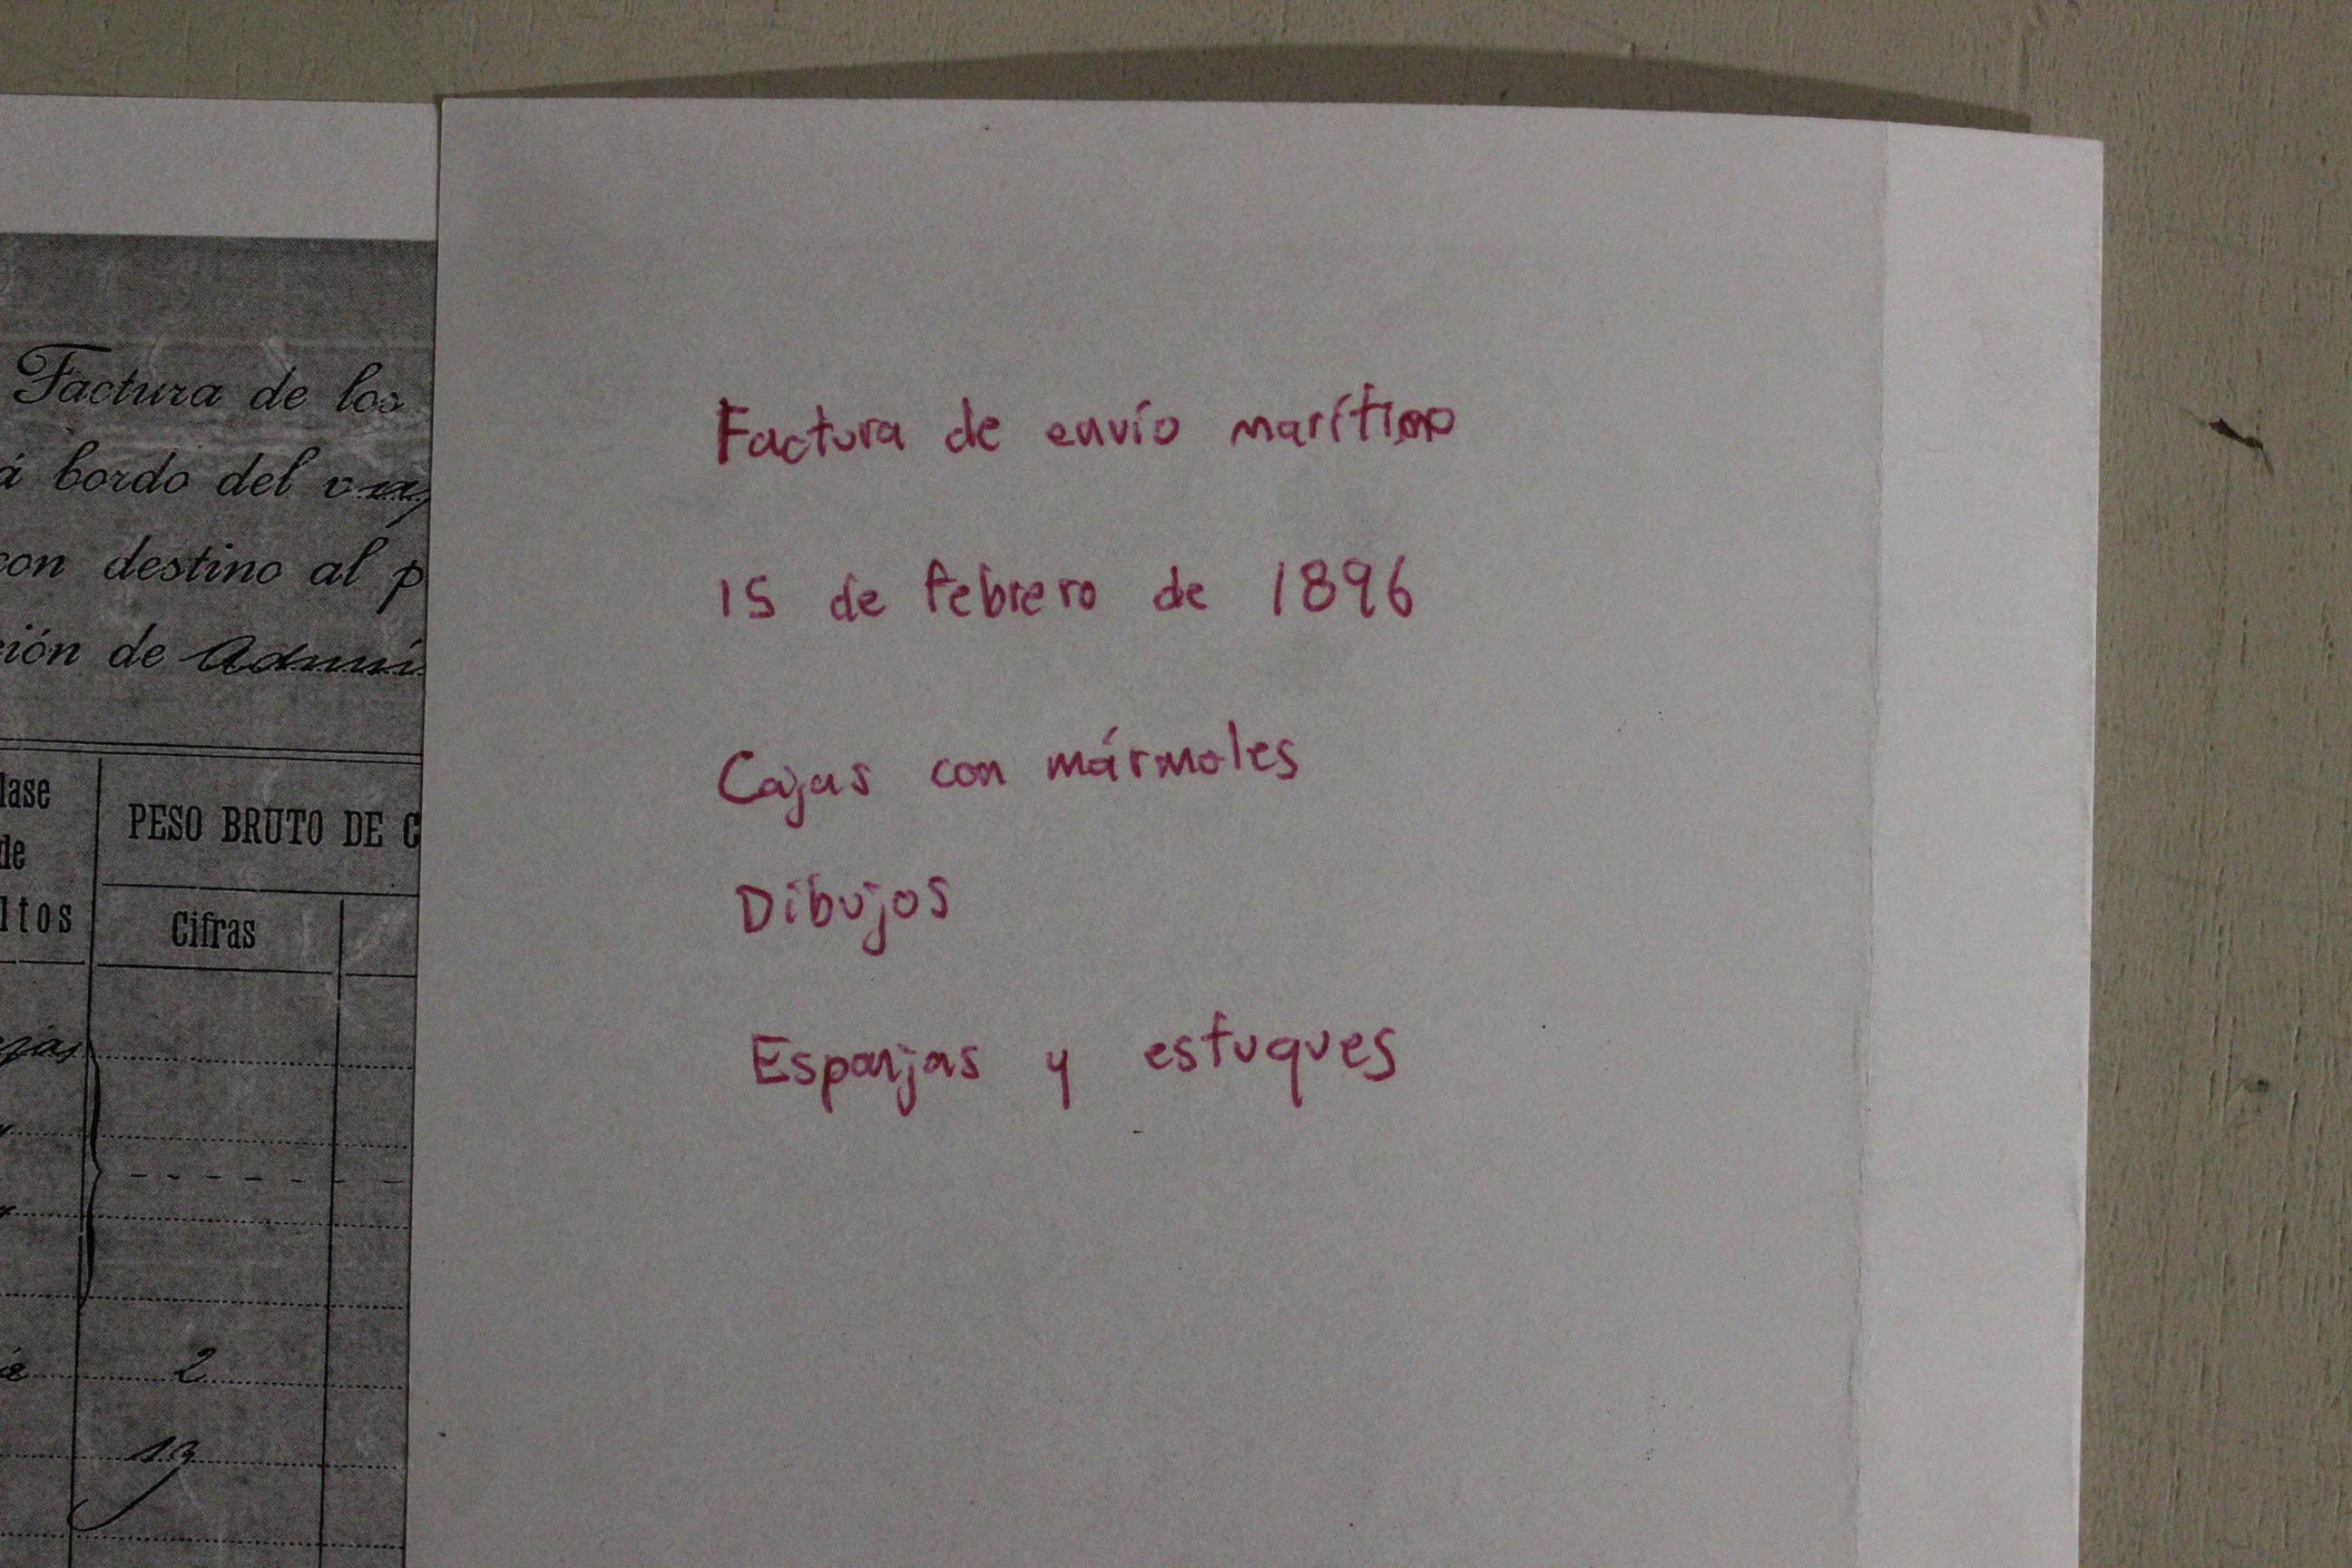 Factura de los
á bordo del
con destino al p
ión de Admi
lase
de
ltos
PESO BRUTO DE C
Cifras
2
13
Factura de envío marítimo
15 de febrero de 1896
Cajas con mármoles
Dibujos
Esponjas y estuques